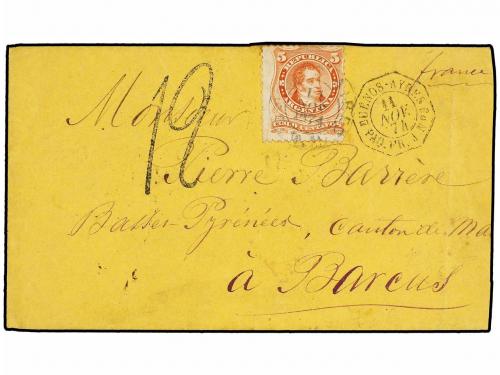 5 REPUBLICA 5
ARGENTINA
BUENOS-AYRES
11
NOV.
74
france
12
Monsieur
Pierre Barrère
Basses-Pyrénées, Canton de Ma
à Barcus